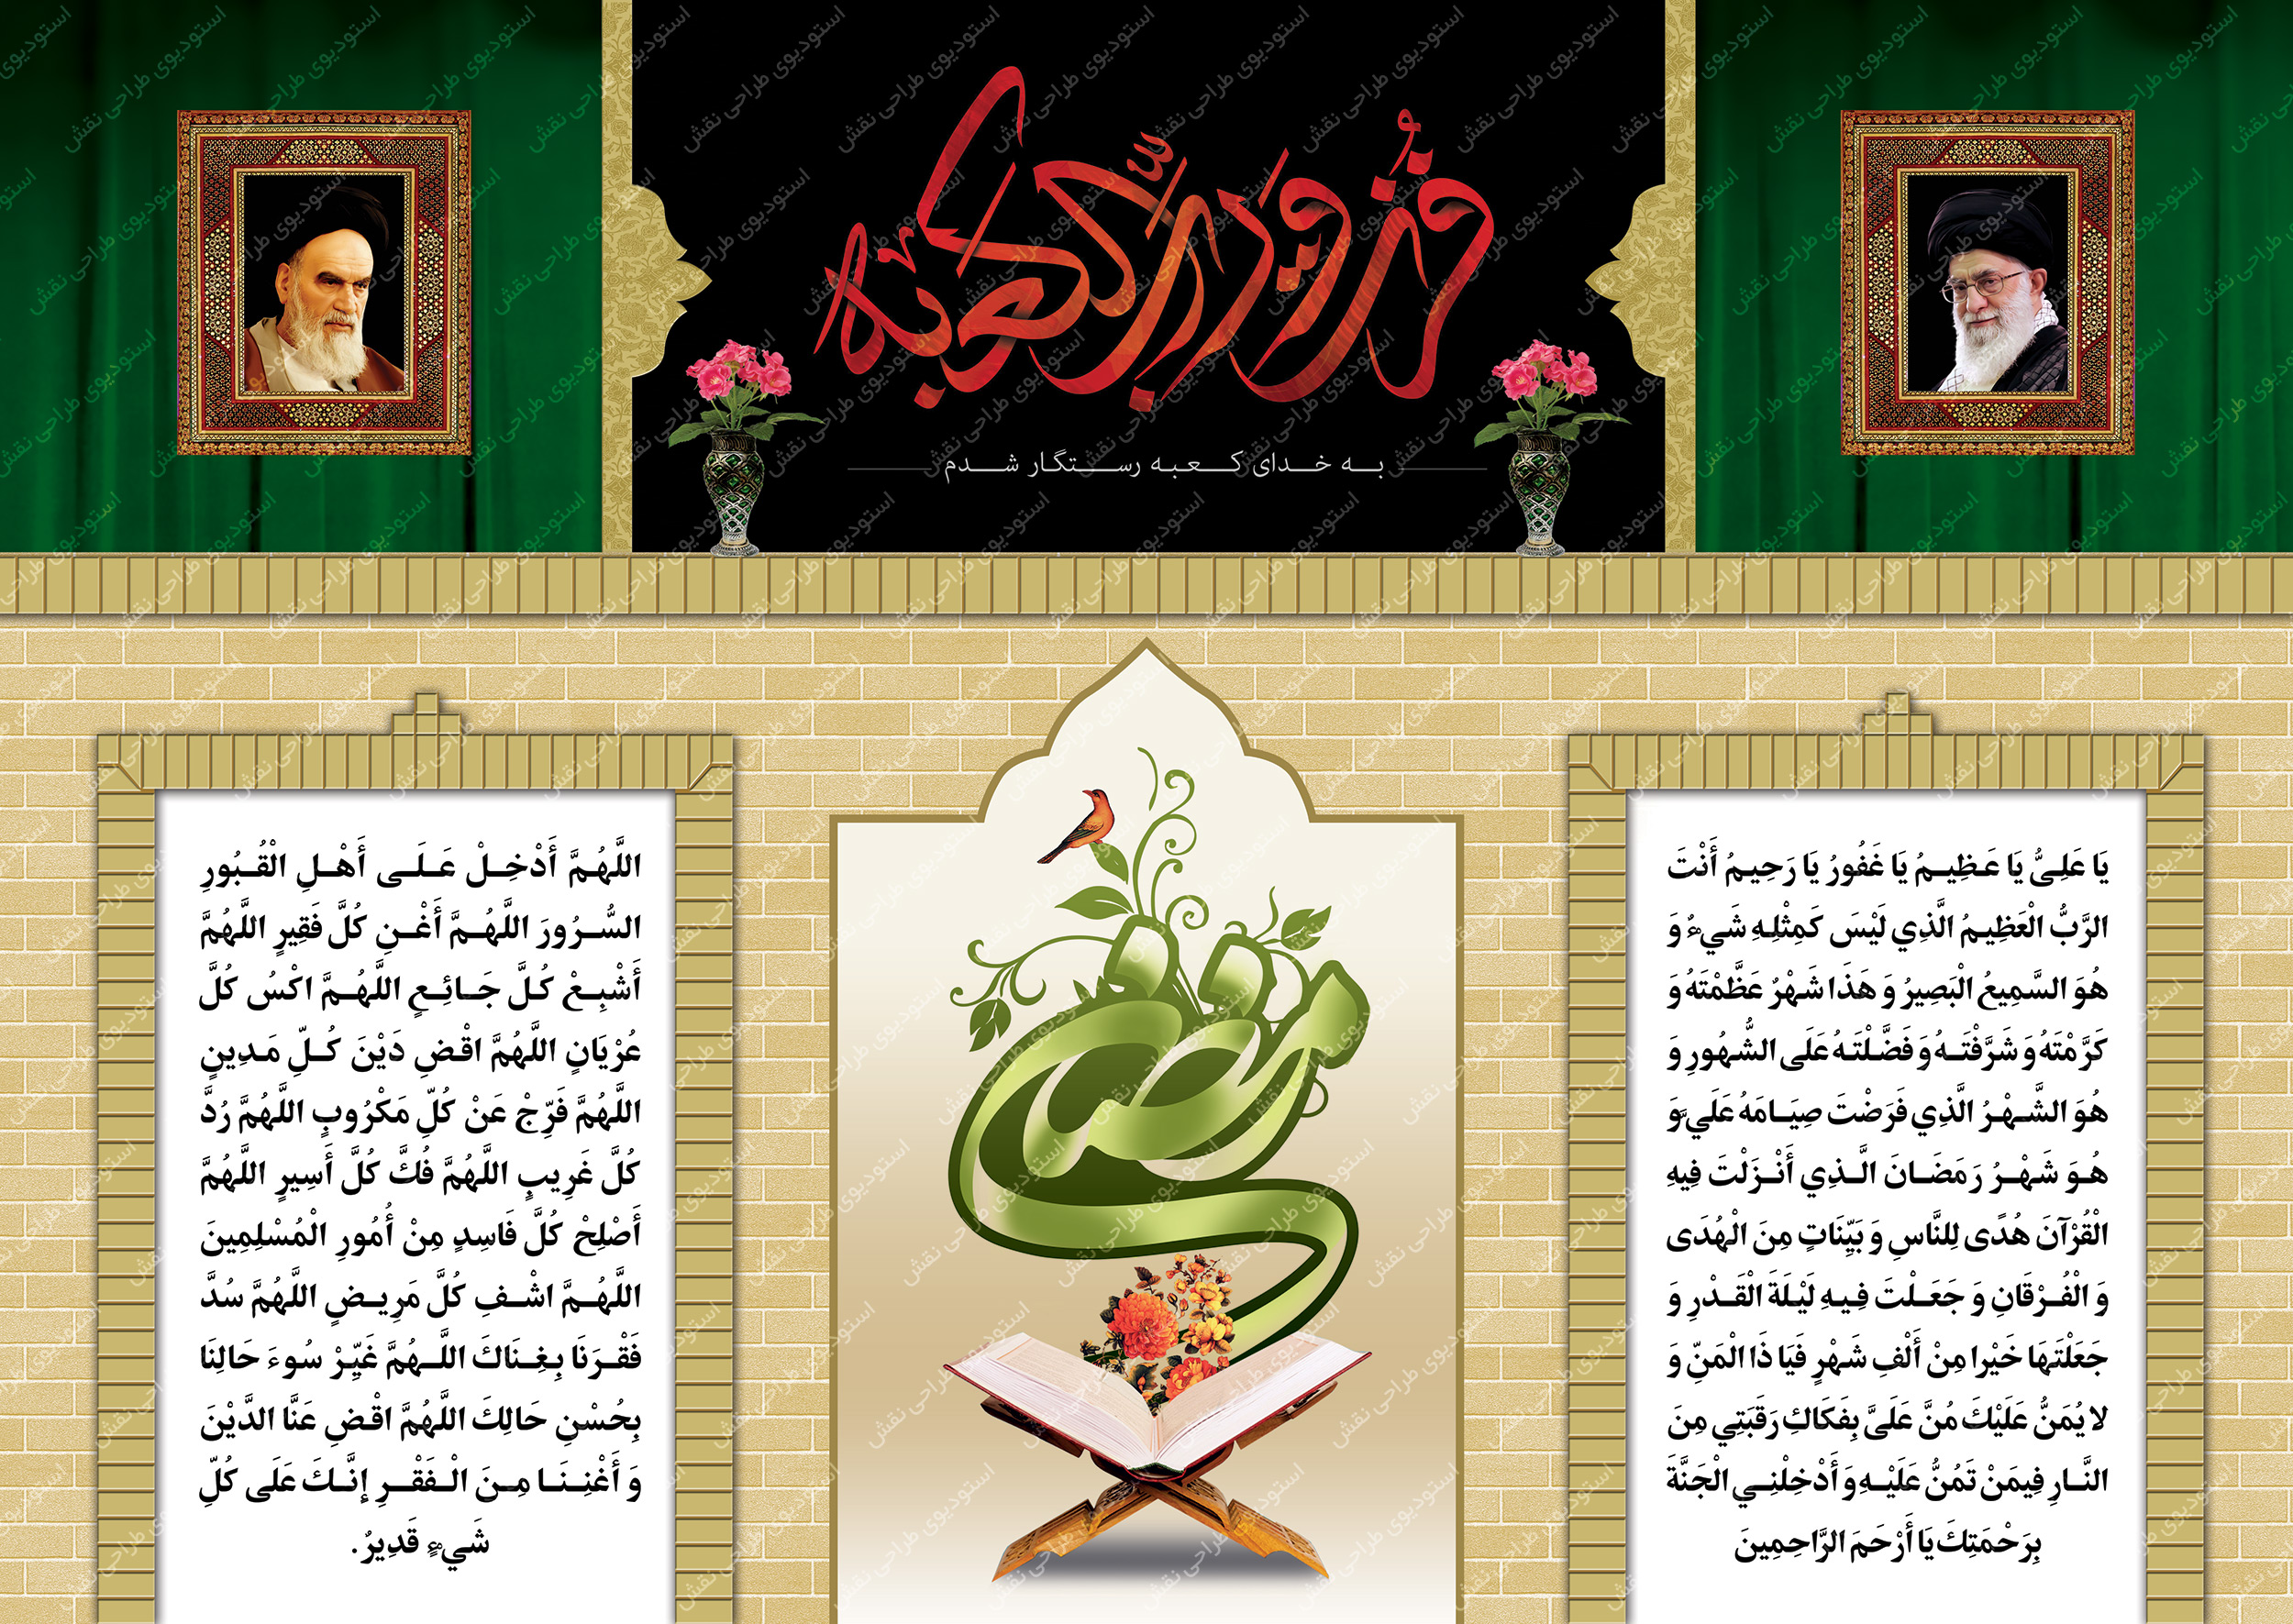 فُزتُ و ربِّ الكعبه
به خدای کعبه رستگار شدم
يَا عَلِيُّ يَا عَظِيمُ يَا غَفُورُ يَا رَحِيمُ أَنْتَ
الرَّبُّ الْعَظِيمُ الَّذِي لَيْسَ كَمِثْلِهِ شَيْءٌ وَ
هُوَ السَّمِيعُ الْبَصِيرُ وَ هَذَا شَهْرٌ عَظَّمْتَهُ وَ
كَرَّمْتَهُ وَ شَرَّفْتَهُ وَ فَضَّلْتَهُ عَلَى الشُّهُورِ وَ
هُوَ الشَّهْرُ الَّذِي فَرَضْتَ صِيَامَهُ عَلَيَّ وَ
هُوَ شَهْرُ رَمَضَانَ الَّذِي أَنْزَلْتَ فِيهِ
الْقُرْآنَ هُدًى لِلنَّاسِ وَ بَيِّنَاتٍ مِنَ الْهُدَى
وَ الْفُرْقَانِ وَ جَعَلْتَ فِيهِ لَيْلَةَ الْقَدْرِ وَ
جَعَلْتَهَا خَيْرا مِنْ أَلْفِ شَهْرٍ فَيَا ذَا الْمَنِّ وَ
لا يُمَنُّ عَلَيْكَ مُنَّ عَلَيَّ بِفَكَاكِ رَقَبَتِي مِنَ
النَّارِ فِيمَنْ تَمُنُّ عَلَيْهِ وَ أَدْخِلْنِي الْجَنَّةَ
بِرَحْمَتِكَ يَا أَرْحَمَ الرَّاحِمِينَ
رمضان
اللَّهُمَّ أَدْخِلْ عَلَى أَهْلِ الْقُبُورِ
السُّرُورَ اللَّهُمَّ أَغْنِ كُلَّ فَقِيرٍ اللَّهُمَّ
أَشْبِعْ كُلَّ جَائِعٍ اللَّهُمَّ اكْسُ كُلَّ
عُرْيَانٍ اللَّهُمَّ اقْضِ دَيْنَ كُلِّ مَدِينٍ
اللَّهُمَّ فَرِّجْ عَنْ كُلِّ مَكْرُوبٍ اللَّهُمَّ رُدَّ
كُلَّ غَرِيبٍ اللَّهُمَّ فُكَّ كُلَّ أَسِيرٍ اللَّهُمَّ
أَصْلِحْ كُلَّ فَاسِدٍ مِنْ أُمُورِ الْمُسْلِمِينَ
اللَّهُمَّ اشْفِ كُلَّ مَرِيضٍ اللَّهُمَّ سُدَّ
فَقْرَنَا بِغِنَاكَ اللَّهُمَّ غَيِّرْ سُوءَ حَالِنَا
بِحُسْنِ حَالِكَ اللَّهُمَّ اقْضِ عَنَّا الدَّيْنَ
وَ أَغْنِنَا مِنَ الْفَقْرِ إِنَّكَ عَلَى كُلِّ
شَيْءٍ قَدِيرٌ.
استودیوی طراحی نقش